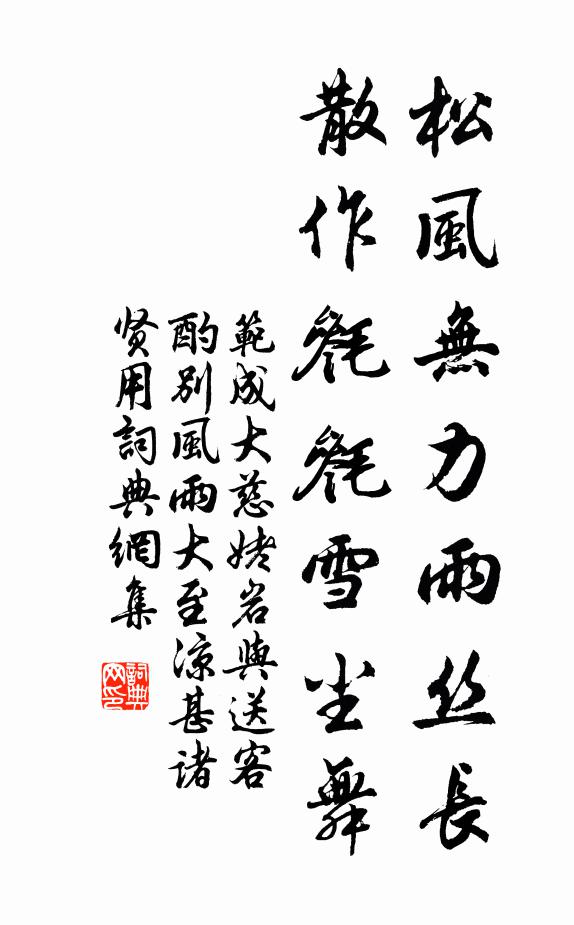 松風無力雨丝長
散作毿毿雪尘舞
範成大慈姥岩與送客
酌别風雨大至凉甚諸
贤用詞典網集
詞典网印